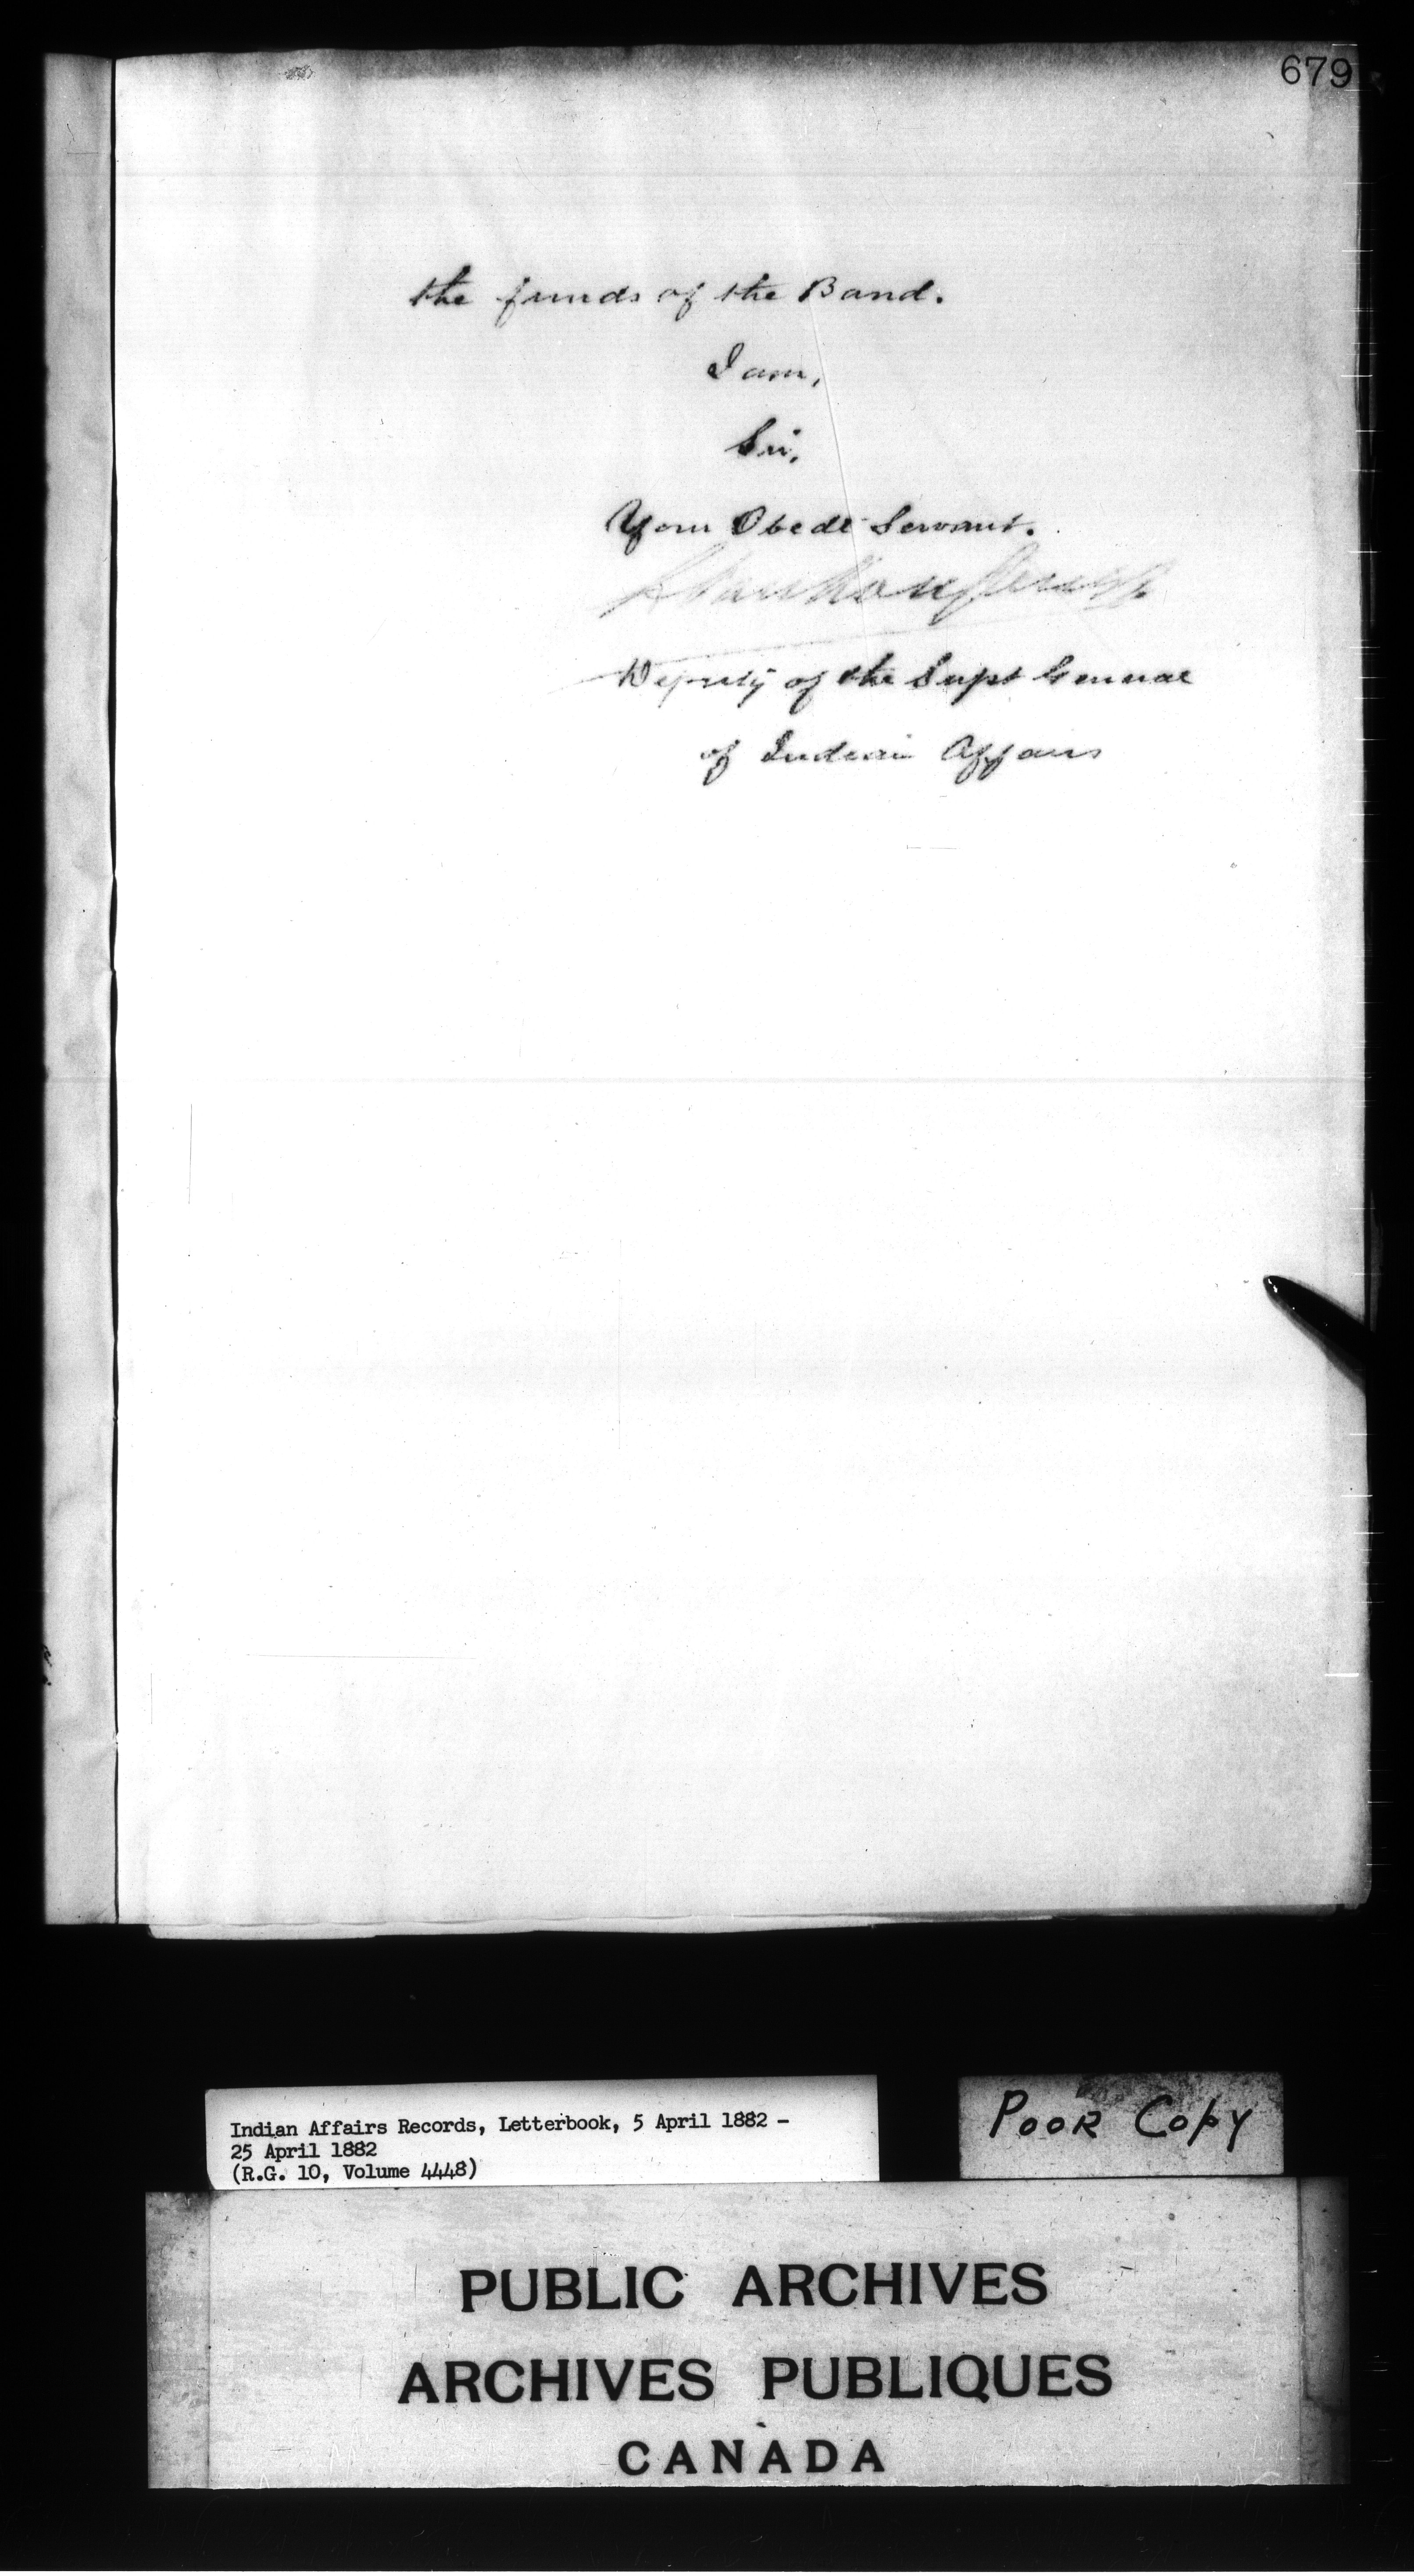 679
the funds of the Band.
I am,
Sir,
Your Obedt Servant.
L Vankoughnet
Deputy of the Supt General
of Indian Affairs
Indian Affairs Records, Letterbook, 5 April 1882 -
25 April 1882
(R.G. 10, Volume 4448)
POOR COPY
PUBLIC ARCHIVES
ARCHIVES PUBLIQUES
CANADA